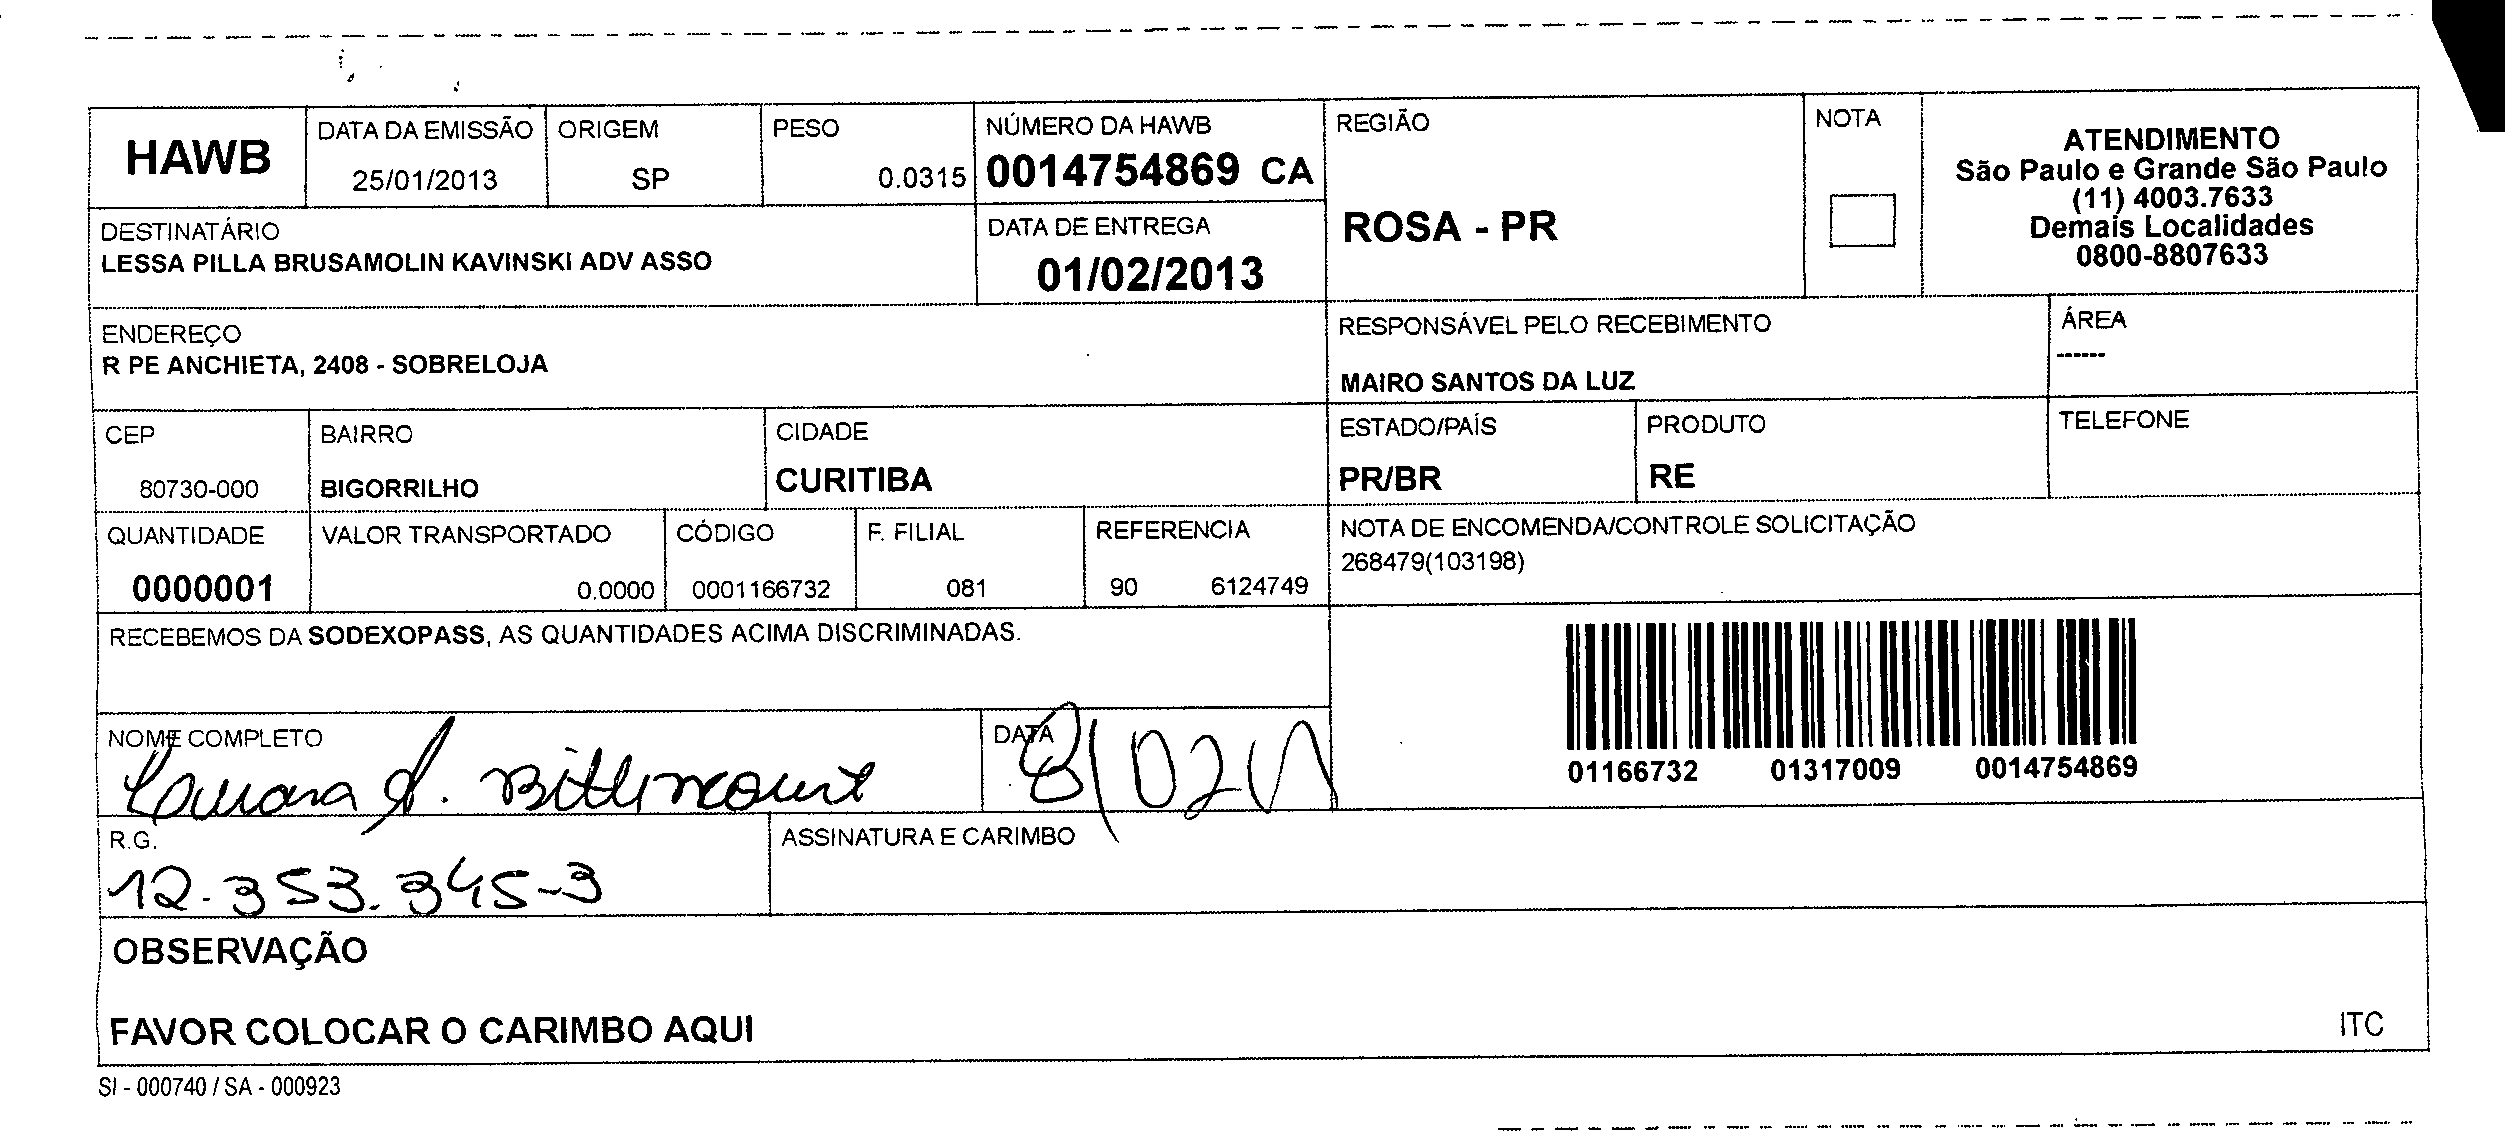 HAWB
DATA DA EMISSÃO
25/01/2013
ORIGEM
SP
PESO
0.0315
NÚMERO DA HAWB
0014754869 CA
REGIÃO
ROSA - PR
NOTA
ATENDIMENTO
São Paulo e Grande São Paulo
(11) 4003.7633
Demais Localidades
0800-8807633
DESTINATÁRIO
LESSA PILLA BRUSAMOLIN KAVINSKI ADV ASSO
DATA DE ENTREGA
01/02/2013
ENDEREÇO
R PE ANCHIETA, 2408 - SOBRELOJA
RESPONSÁVEL PELO RECEBIMENTO
MAIRO SANTOS DA LUZ
ÁREA
------
CEP
80730-000
BAIRRO
BIGORRILHO
CIDADE
CURITIBA
ESTADO/PAÍS
PR/BR
PRODUTO
RE
TELEFONE
QUANTIDADE
0000001
VALOR TRANSPORTADO
0.0000
CÓDIGO
0001166732
F. FILIAL
081
REFERENCIA
90 6124749
NOTA DE ENCOMENDA/CONTROLE SOLICITAÇÃO
268479(103198)
RECEBEMOS DA SODEXOPASS, AS QUANTIDADES ACIMA DISCRIMINADAS.
01166732 01317009 0014754869
NOME COMPLETO
Bittencourt
DATA
R.G.
12.353.345-3
ASSINATURA E CARIMBO
OBSERVAÇÃO
FAVOR COLOCAR O CARIMBO AQUI
ITC
SI - 000740 / SA - 000923